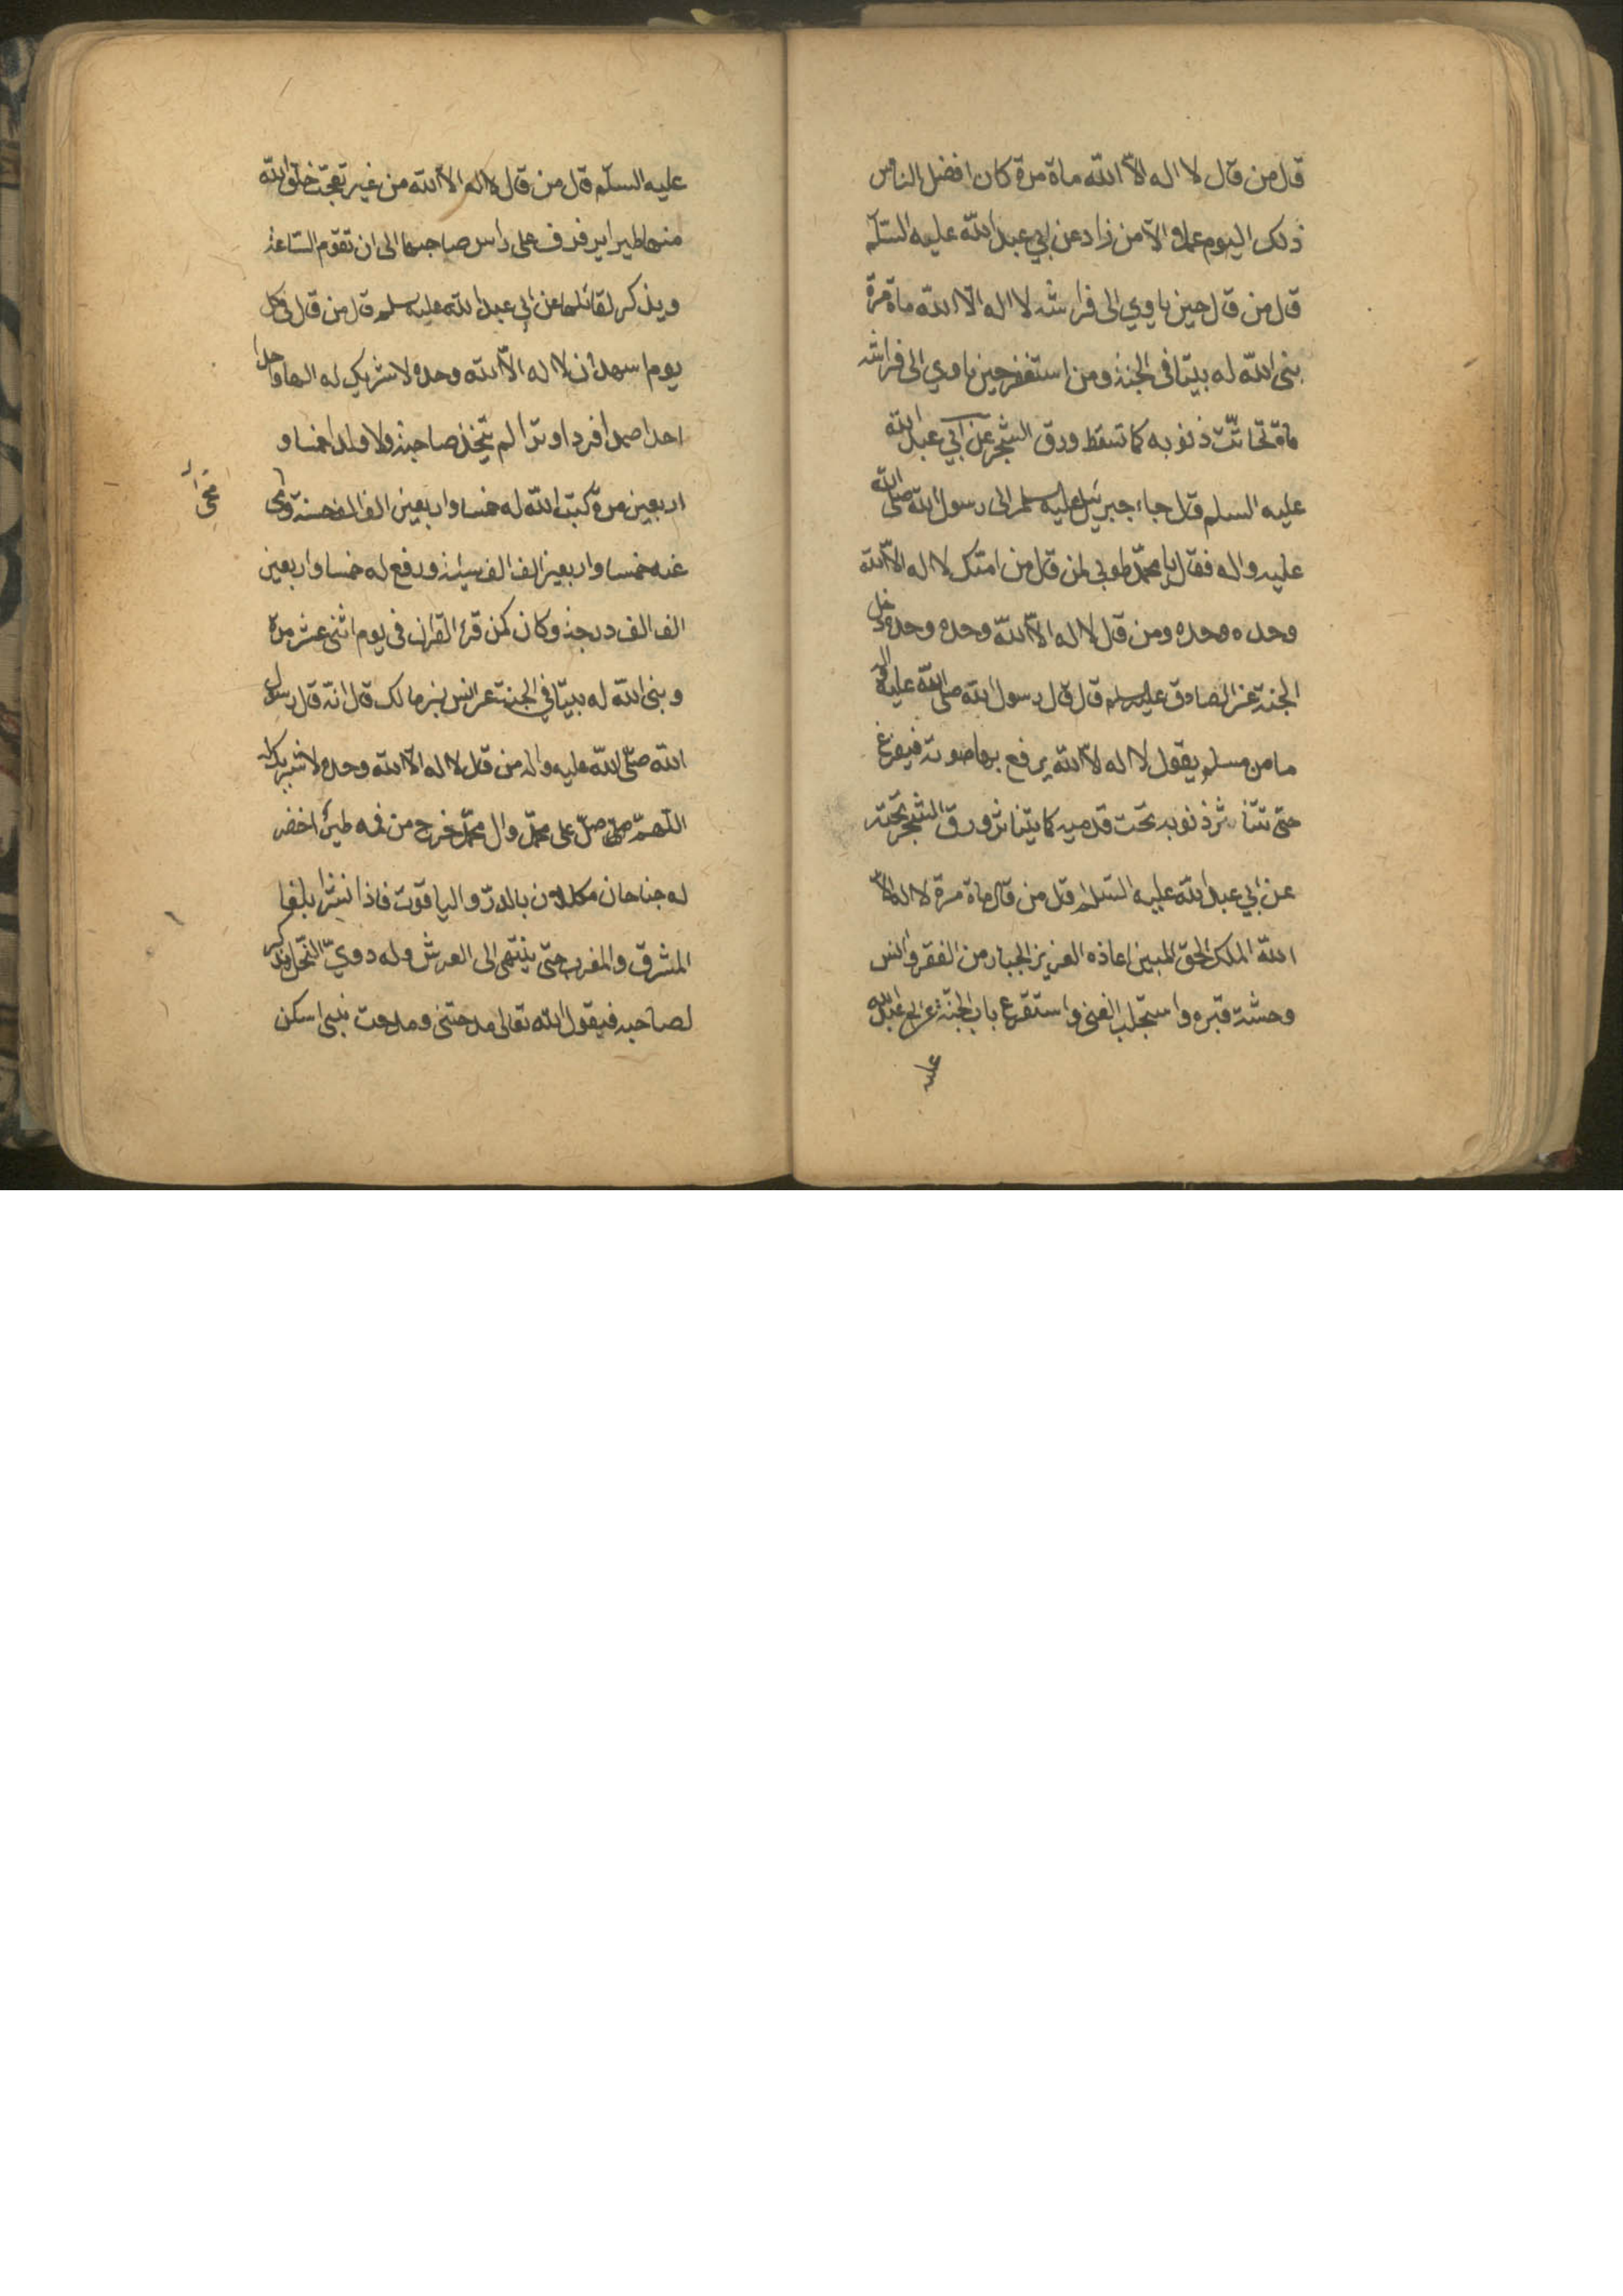 قال من قال لا اله الّا الله ماة مرة كان افضل الناس
ذلك اليوم عملا الّا من زاد عن ابي عبد الله عليه السّلم
قال من قال حين ياوي الى فراشه لا اله الّا الله ماة مرة
بنى الله له بيتا في الجنة ومن استغفر حين ياوي الى فراشه
ماة تحاتّت ذنوبه كما تسقط ورق الشجر عن ابي عبد الله
عليه السلم قال جاء جبرئيل عليه سلم الى رسول الله صلى الله
عليه واله فقال يا محمّد طوبى لمن قال من امتك لا اله الّا الله
وحده وحده ومن قال لا اله الّا الله وحده وحده دخل
الجنة عن الصادق عليه سلم قال قال رسول الله صلى الله عليه واله
ما من مسلم يقول لا اله الّا الله يرفع بها صوته فيفرغ
حتى تتناثر ذنوبه تحت قدميه كما يتناثر ورق الشجر تحته
عن ابي عبد الله عليه السّلم قال من قال ماة مرة لا اله الّا
الله الملك الحق المبين اعاذه العزيز الجبار من الفقر وانس
وحشة قبره واستجلب الغنى واستقرع باب الجنة عن ابي عبد الله
عليه
عليه السلّم قال من قال لا اله الّا الله من غير تعجّب خلق الله
منها طيرا يرفرف على راس صاحبها الى ان تقوم السّاعة
ويذكر لقائلها عن ابي عبد الله عليه سلم قال من قال في كل
يوم اسهد ان لا اله الّا الله وحده لا شريك له الها واحدا
احدا صمدا فردا وترا لم يتخذ صاحبة ولا ولدا خمسا و
اربعين مرة كتب الله له خمسا واربعين الف الف حسنة ومحى
عنه خمسا واربعين الف الف سيئة ورفع له خمسا واربعين
الف الف درجة وكان كمن قرء القران في يوم اثنى عشر مرة
وبنى الله له بيتا في الجنة عن انس بن مالك قال انّه قال رسول
الله صلّى الله عليه واله من قال لا اله الّا الله وحده لا شريك له
اللّهمّ صلّ على محمّد وال محمّد خرج من فمه طير اخضر
له جناحان مكللان بالدرّ والياقوت فاذا نشرا بلغا
المشرق والمغرب حتى ينتهى الى العرش وله دويّ النّحل يذكر
لصاحبه فيقول الله تعالى مدحتنى ومدحت نبيى اسكن